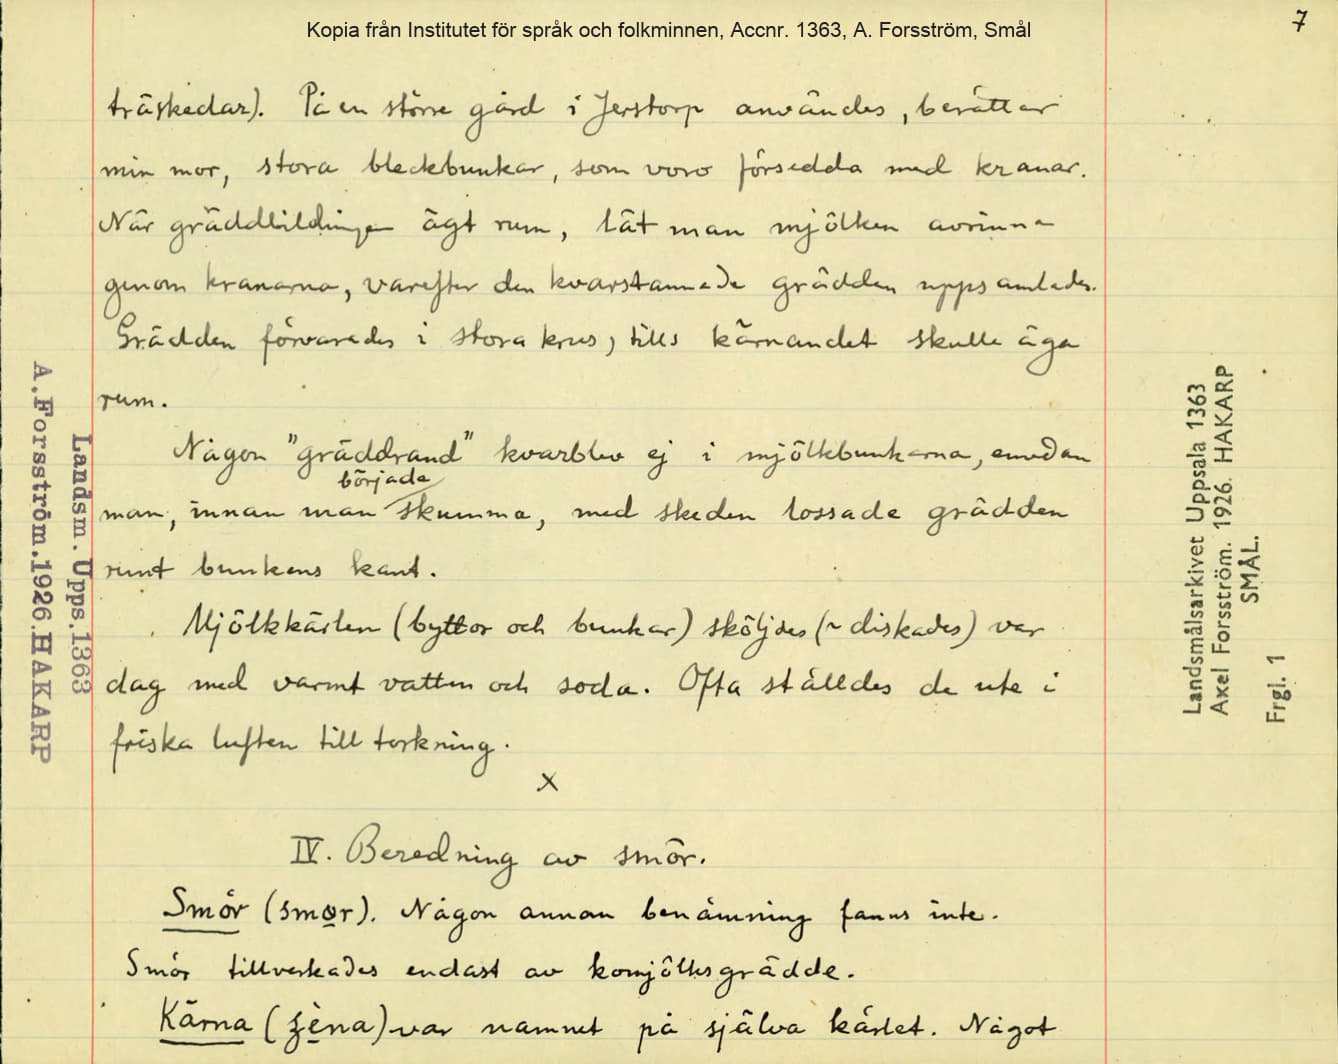 Kopia från Institutet för språk och folkminnen, Accnr. 1363, A. Forsström, Smål
7
träskedar). På en större gård i Jerstorp användes, berättar
min mor, stora bleckbunkar, som voro försedda med kranar.
När gräddbildningen ägt rum, lät man mjölken avrinna
genom kranarna, varefter den kvarstannade grädden uppsamlades.
Grädden förvarades i stora krus, tills kärnandet skulle äga
rum.
Någon "gräddrand" kvarblev ej i mjölkbunkarna, emedan
började
man, innan man skumma, med skeden lossade grädden
runt bunkens kant.
Mjölkkärlen (byttor och bunkar) sköljdes (~ diskades) var
dag med varmt vatten och soda. Ofta ställdes de ute i
friska luften till torkning.
x
IV. Beredning av smör.
Smör (smør). Någon annan benämning fanns inte.
Smör tillverkades endast av komjölksgrädde.
Kärna ( var namnet på själva kärlet. Något
Landsm. Upps. 1363
A. Forsström. 1926. HAKARP
Landsmålsarkivet Uppsala 1363
Axel Forsström. 1926. HAKARP
SMÅL.
Frgl. 1